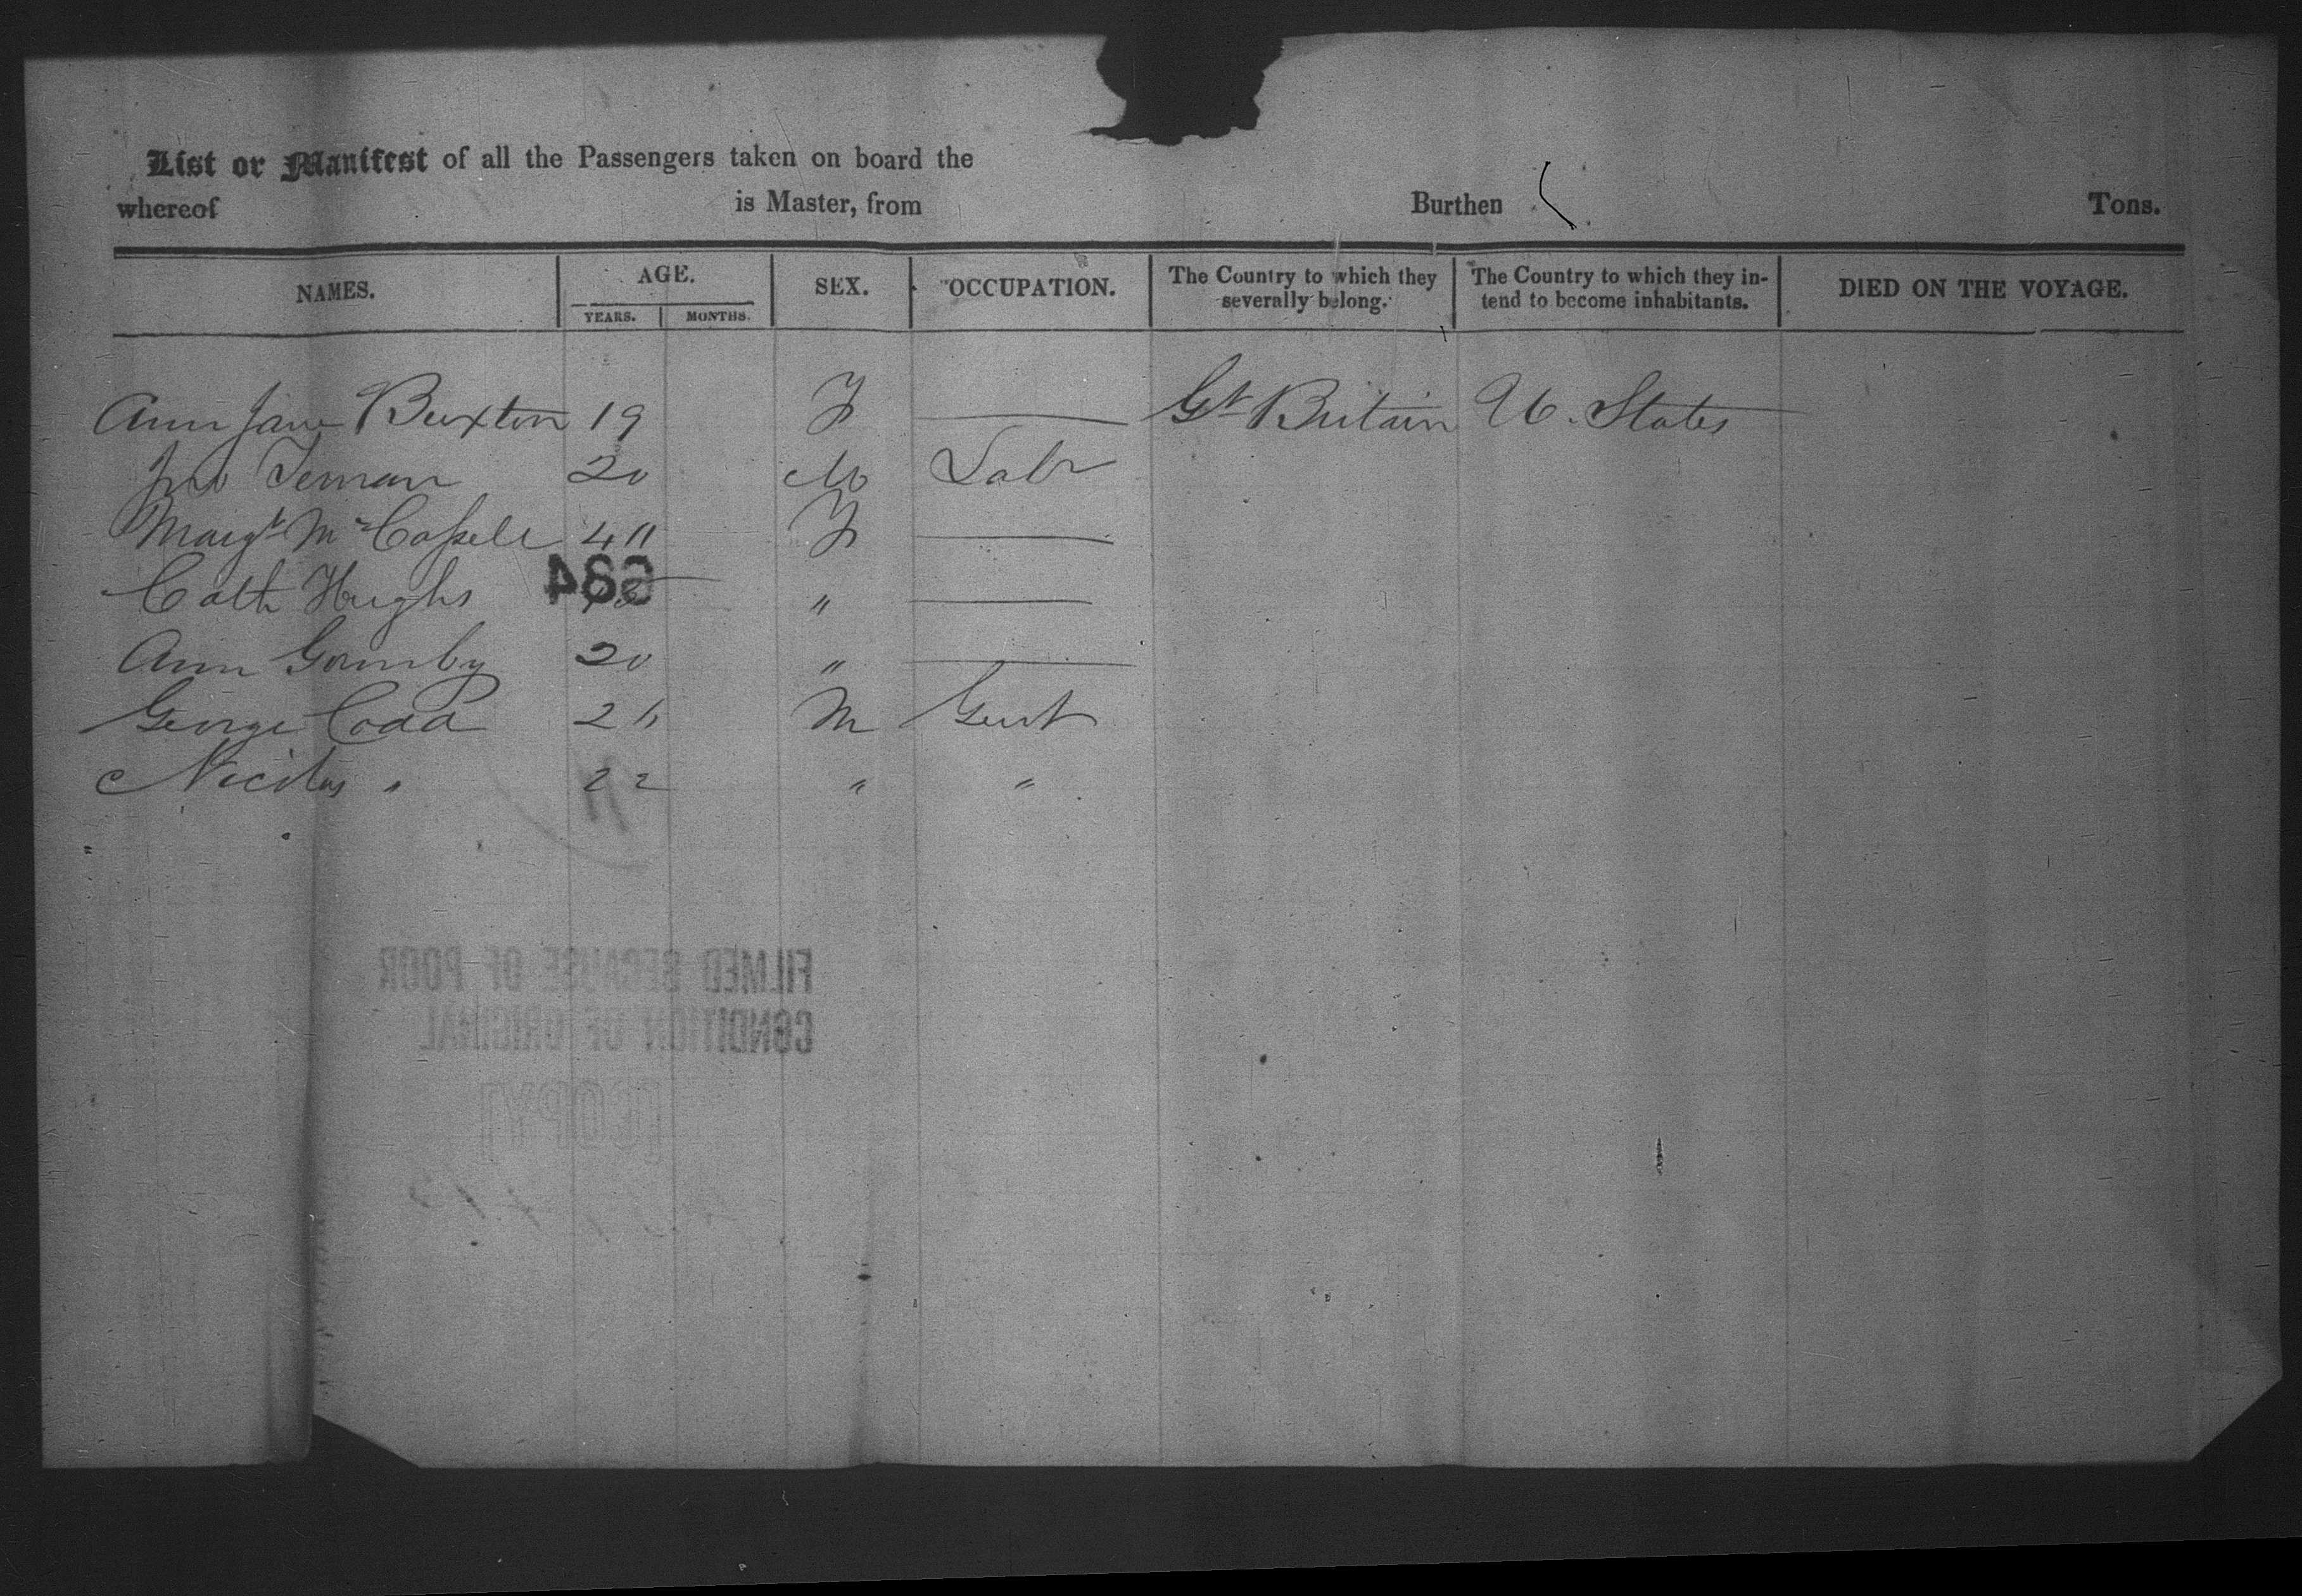 List or Manifest of all the Passengers taken on board the
whereof is Master, from Burthen Tons.
NAMES. AGE. SEX. OCCUPATION. The Country to which they severally belong. The Country to which they intend to become inhabitants. DIED ON THE VOYAGE.
YEARS. MONTHS.
Ann Jane Buxton 19 F — Gt Britain U. States
Jno 20 M Labr
Margt F —
Cath Hughs " —
Ann 20 " —
George Codd M Gent
Nicolas " 22 " "
634
FILMED BECAUSE OF POOR
CONDITION OF ORIGINAL
[COPY]